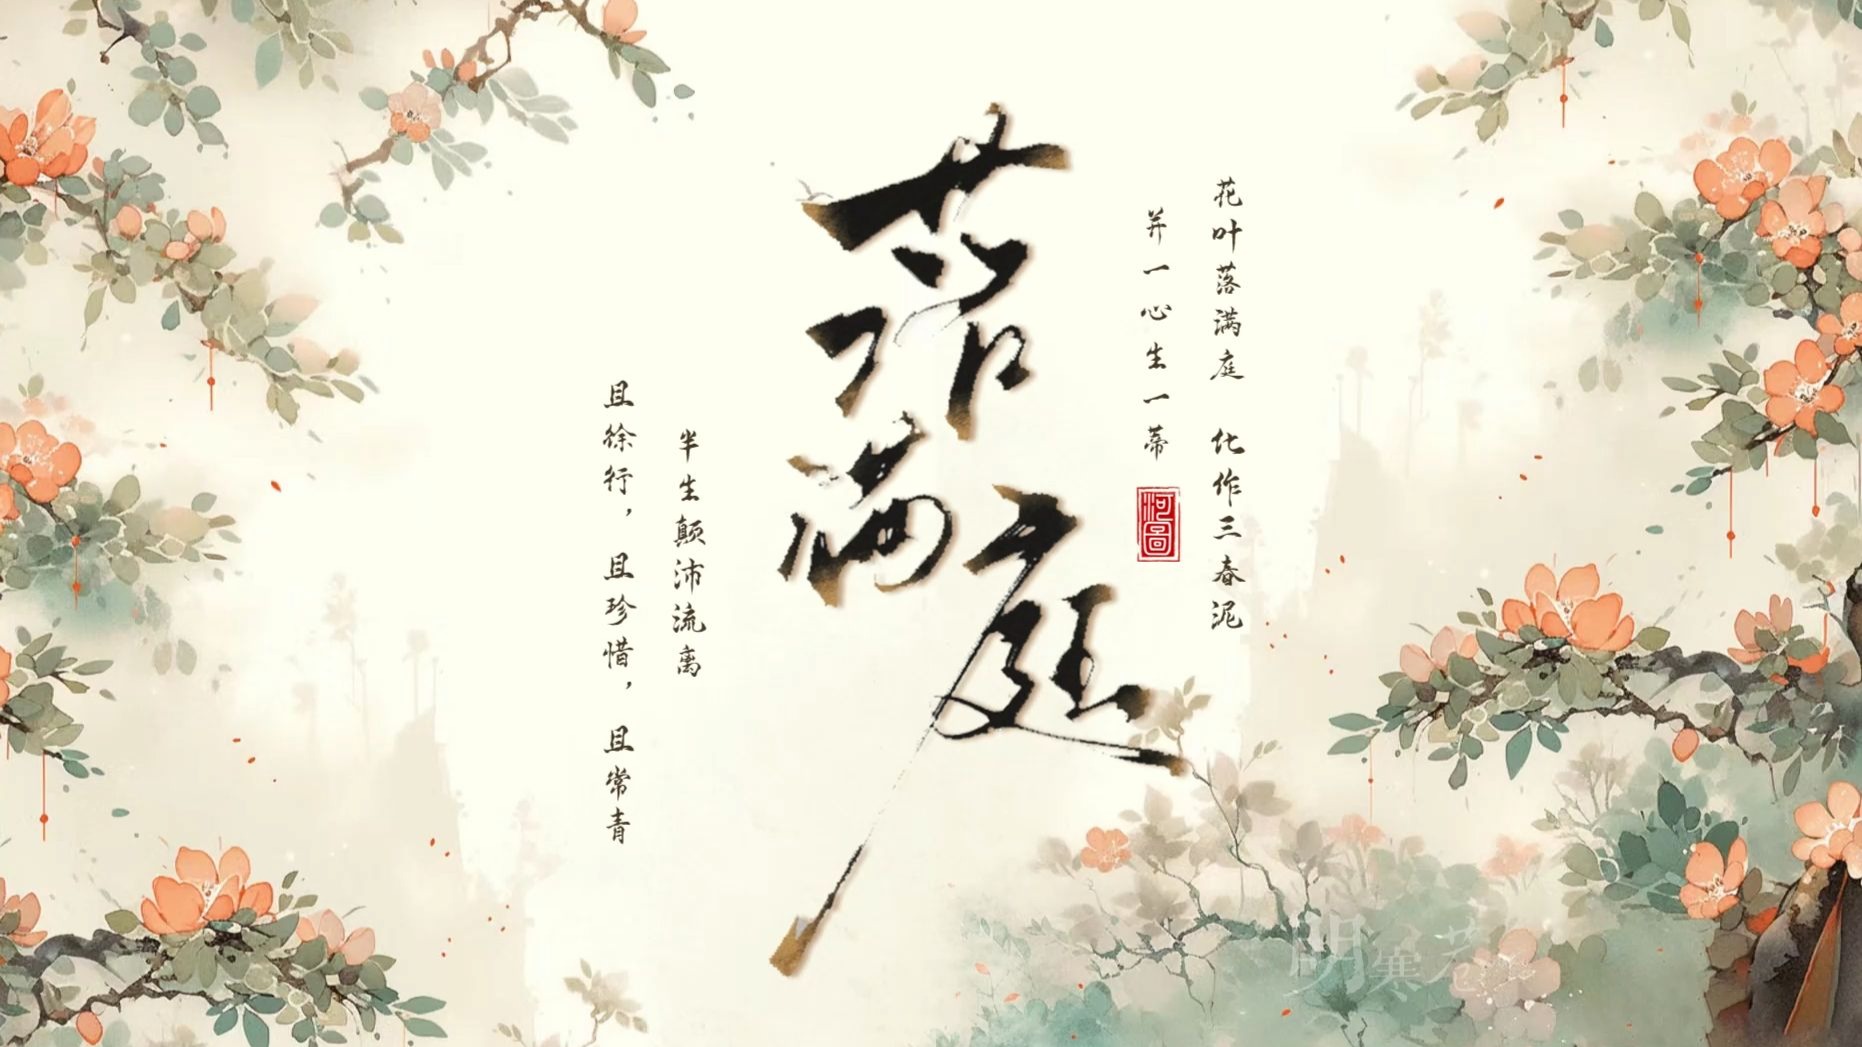 花叶落满庭 化作三春泥
并一心生一蒂
河圖
落满庭
半生颠沛流离
且徐行，且珍惜，且常青
明寒